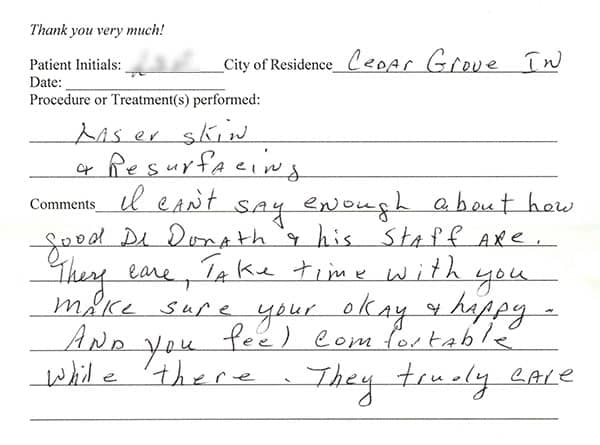 Thank you very much!
Patient Initials: City of Residence Cedar Grove IN
Date:
Procedure or Treatment(s) performed:
Laser skin
& Resurfacing
Comments I can't say enough about how
good Dr Donath & his staff are.
They care, Take time with you
make sure your okay & happy -
And you feel comfortable
while there. They truely care